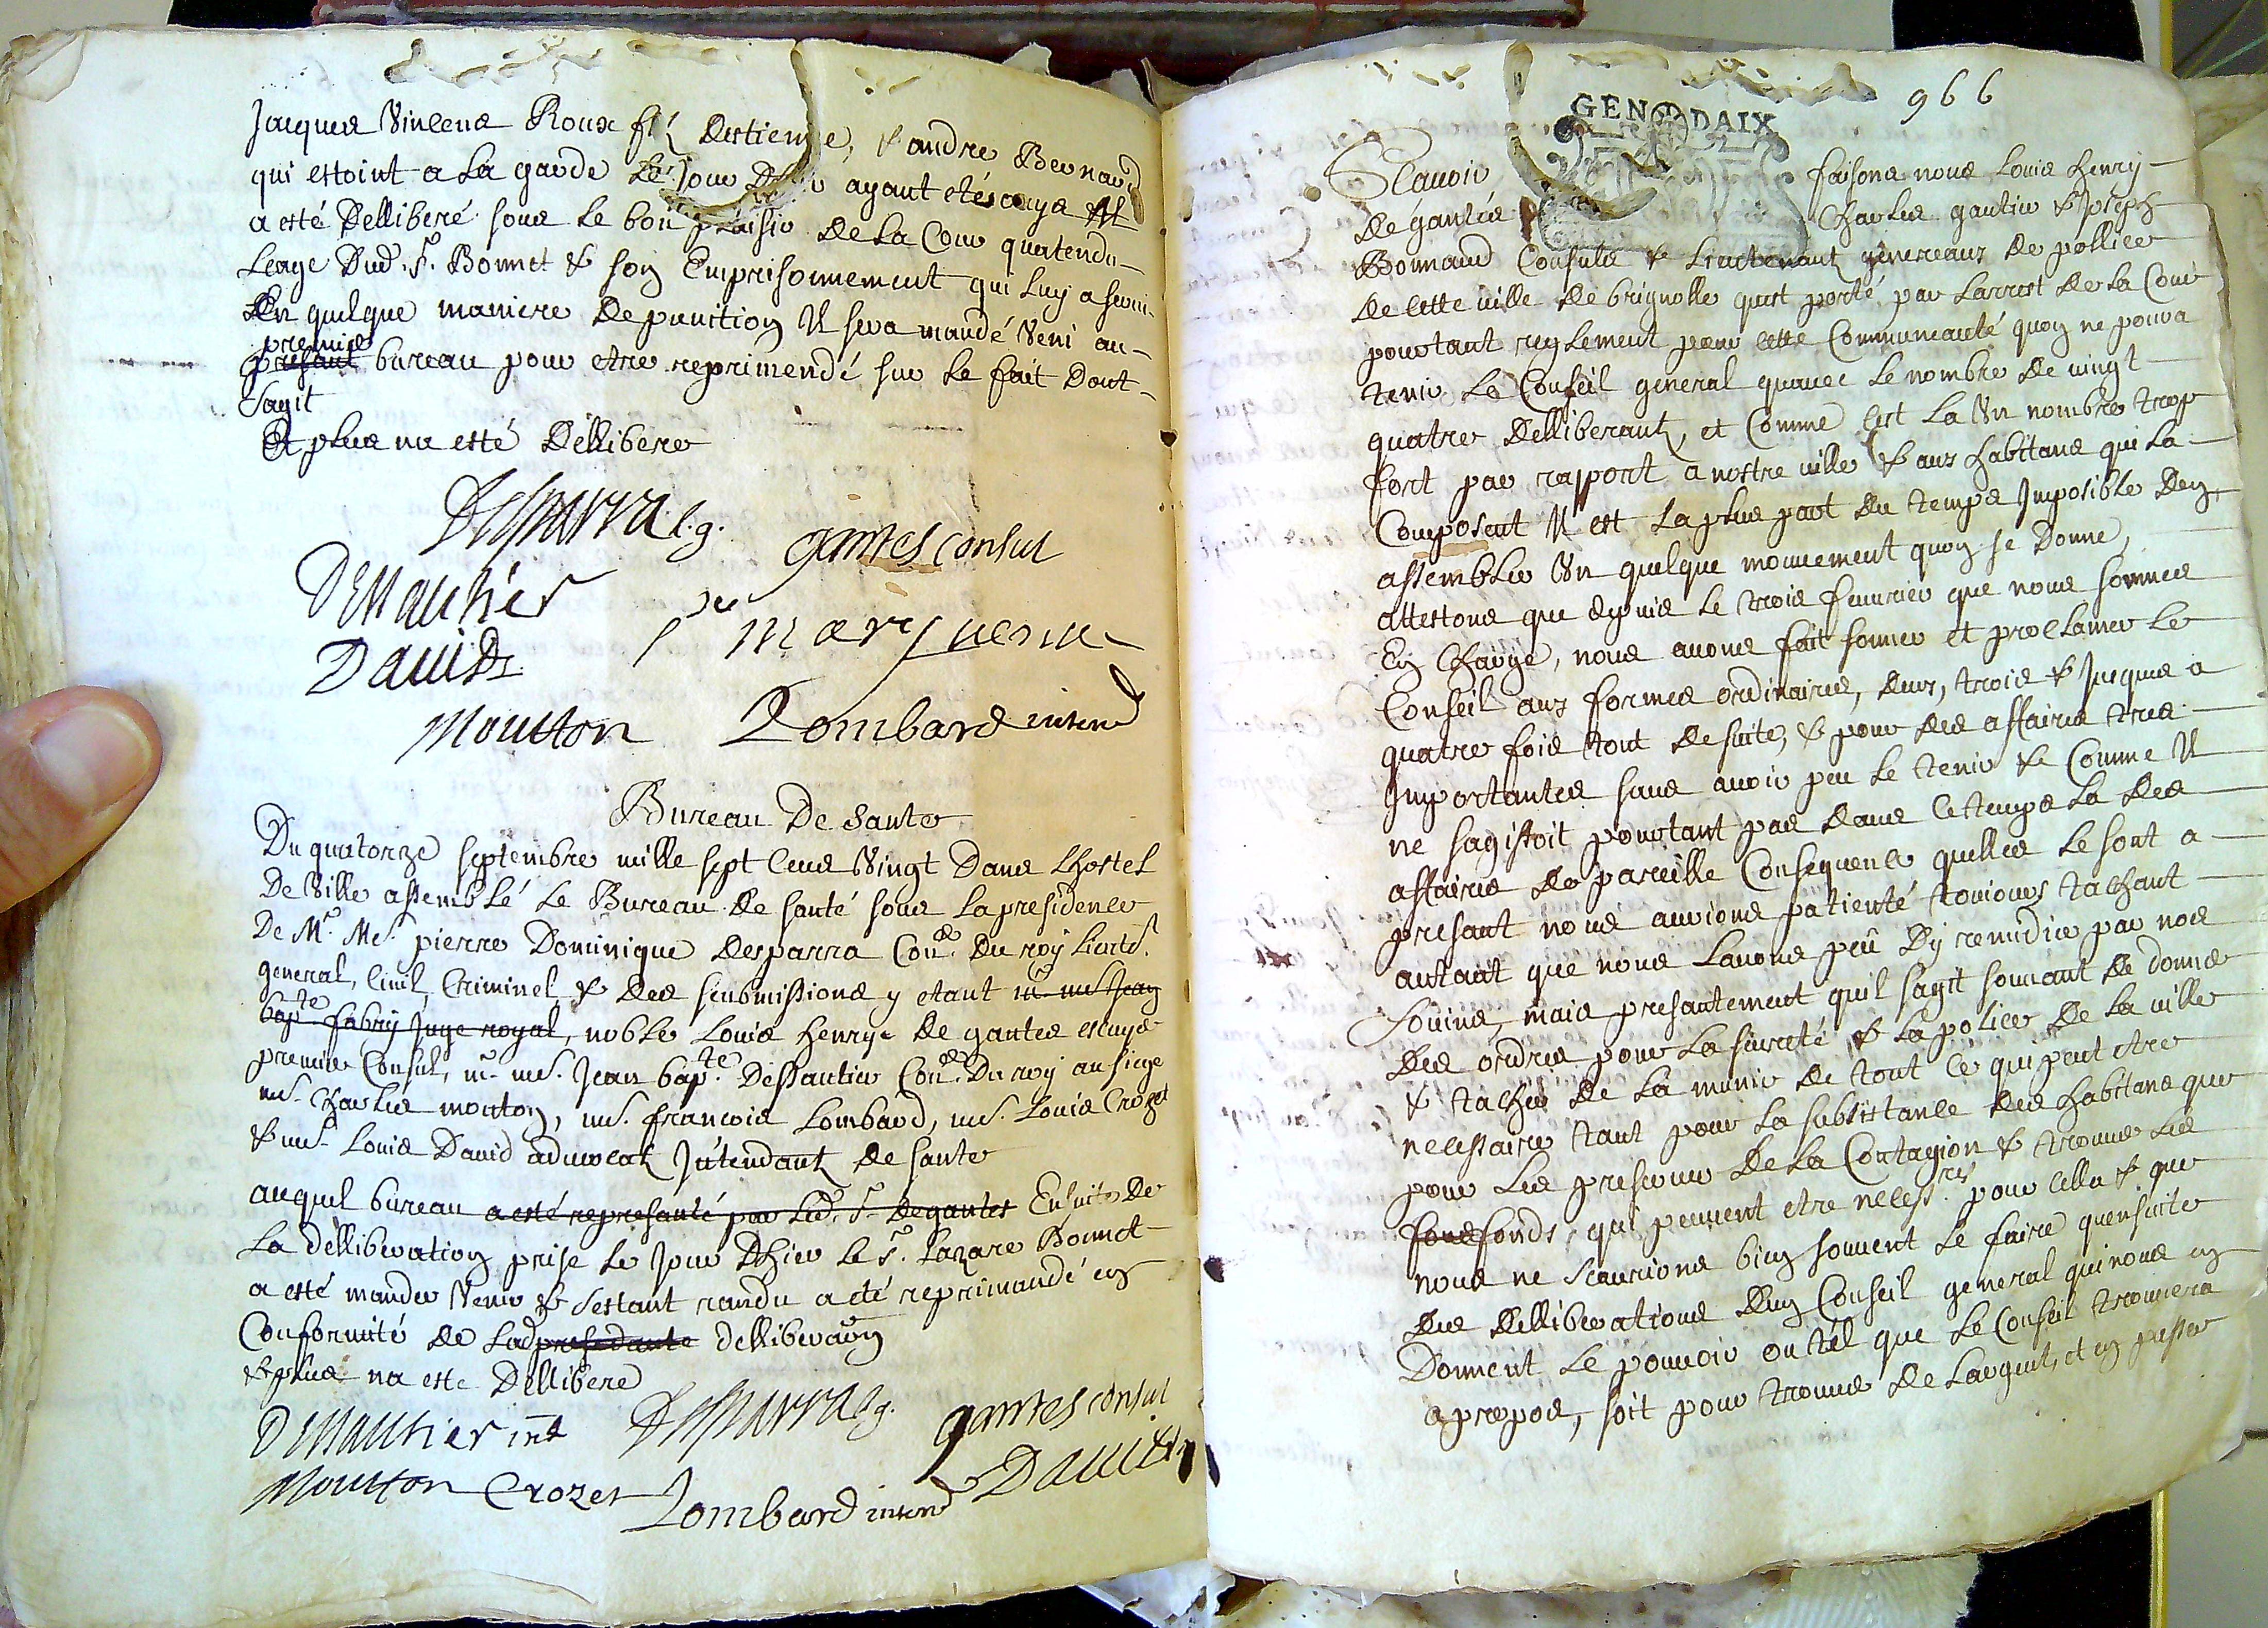 Jacques Vincens Roux fils destienne, & andre Bernard
qui estoint a la garde le jour dhier ayant etés ouys Il
a esté delliberé sous le bon plaisir de la Cour quatendu
leage dud. Sr. Bonnet & son Emprisonnement qui luy a servi
En quelque maniere de punition Il sera mandé Veni au
premier
presant bureau pour etre reprimendé sur le fait dont
sagit
Et plus na esté dellibere
Desparra l.g.
gantes consul
Dessautier
David
Moutton Lombard intend
Bureau De Sante
Du quatorze septembre mille sept Cens Vingt Dans Lhostel
De Ville assemblé Le Bureau de santé sous la presidence
De Mr. Me. pierre Dominique desparra Coner. Du roy lieutt.
general, Civil, Criminel & des submissions y etant m. me Jean
bapte. fabry juge royal, noble Louis henry de gantes escuyer
premier Consul, m. me. Jean bapte. Dessautier Coner. Du roy au siege
me. Charles mouton, me. francois Lombard, me. Louis Crozet
& me. Louis David advocatz Intendantz de sante
auquel bureau a esté represanté par led. Sr. degantes Ensuite de
la delliberation prise le jour Dhier le Sr. Lazare Bonnet
a esté mander Venir & sestant randu a eté reprimandé en
Conformité de lad presedante delliberaon
& plus na este Dellibere
Dessautier int Desparra l.g. gantes consul
Moutton Crozet Lombard intend David
966
GEN DAIX
Scavoir faisons nous Louis henry
de gantes Charles gautier & Joseph
Bonnaud Consuls & Lieutenantz generaux de pollice
de cette ville de brignolle quest porté par larrest de la Cour
pourtant reglement pour cette Communeauté quon ne pourra
tenir le Conseil general quavec le nombre de vingt
quatre delliberantz, et Comme cest la Un nombre trop
fort par rapport a nostre ville & aux habitans qui la
Composent Il est la plus part du temps Imposible den
assembler Un quelque mouvement quon se donne,
attestons que depuis le trois feuvrier que nous sommes
En Charge, nous avons fait sonner et proclamer le
Conseil aux formes ordinaires, deux, trois & Jusques a
quatre fois tout de suite, & pour des affaires tres
Importantes sans avoir peu le tenir & Comme Il
ne sagissoit pourtant pas dans ce temps la des
affaires de pareille Consequence quelles le sont a
presant nous avvions patienté toujours tachant
autant que nous lavons peû dy remedier par nos
souins, mais presantement quil sagit souvant de donner
des ordres pour la sureté & la police de la ville
& tacher de la munir de tout ce qui peut etre
necessaire tant pour la subsistance des habitans que
pour les preserver de la Contagion & trouver les
fons fonds, qui peuvent etre necessres. pour cella & que
nous ne scaurions bien souvent le faire quensuite
des delliberations dun Conseil general qui nous en
donnent le pouvoir ou tel que le Conseil trouvera
a propos, soit pour trouver de largent, et en passer